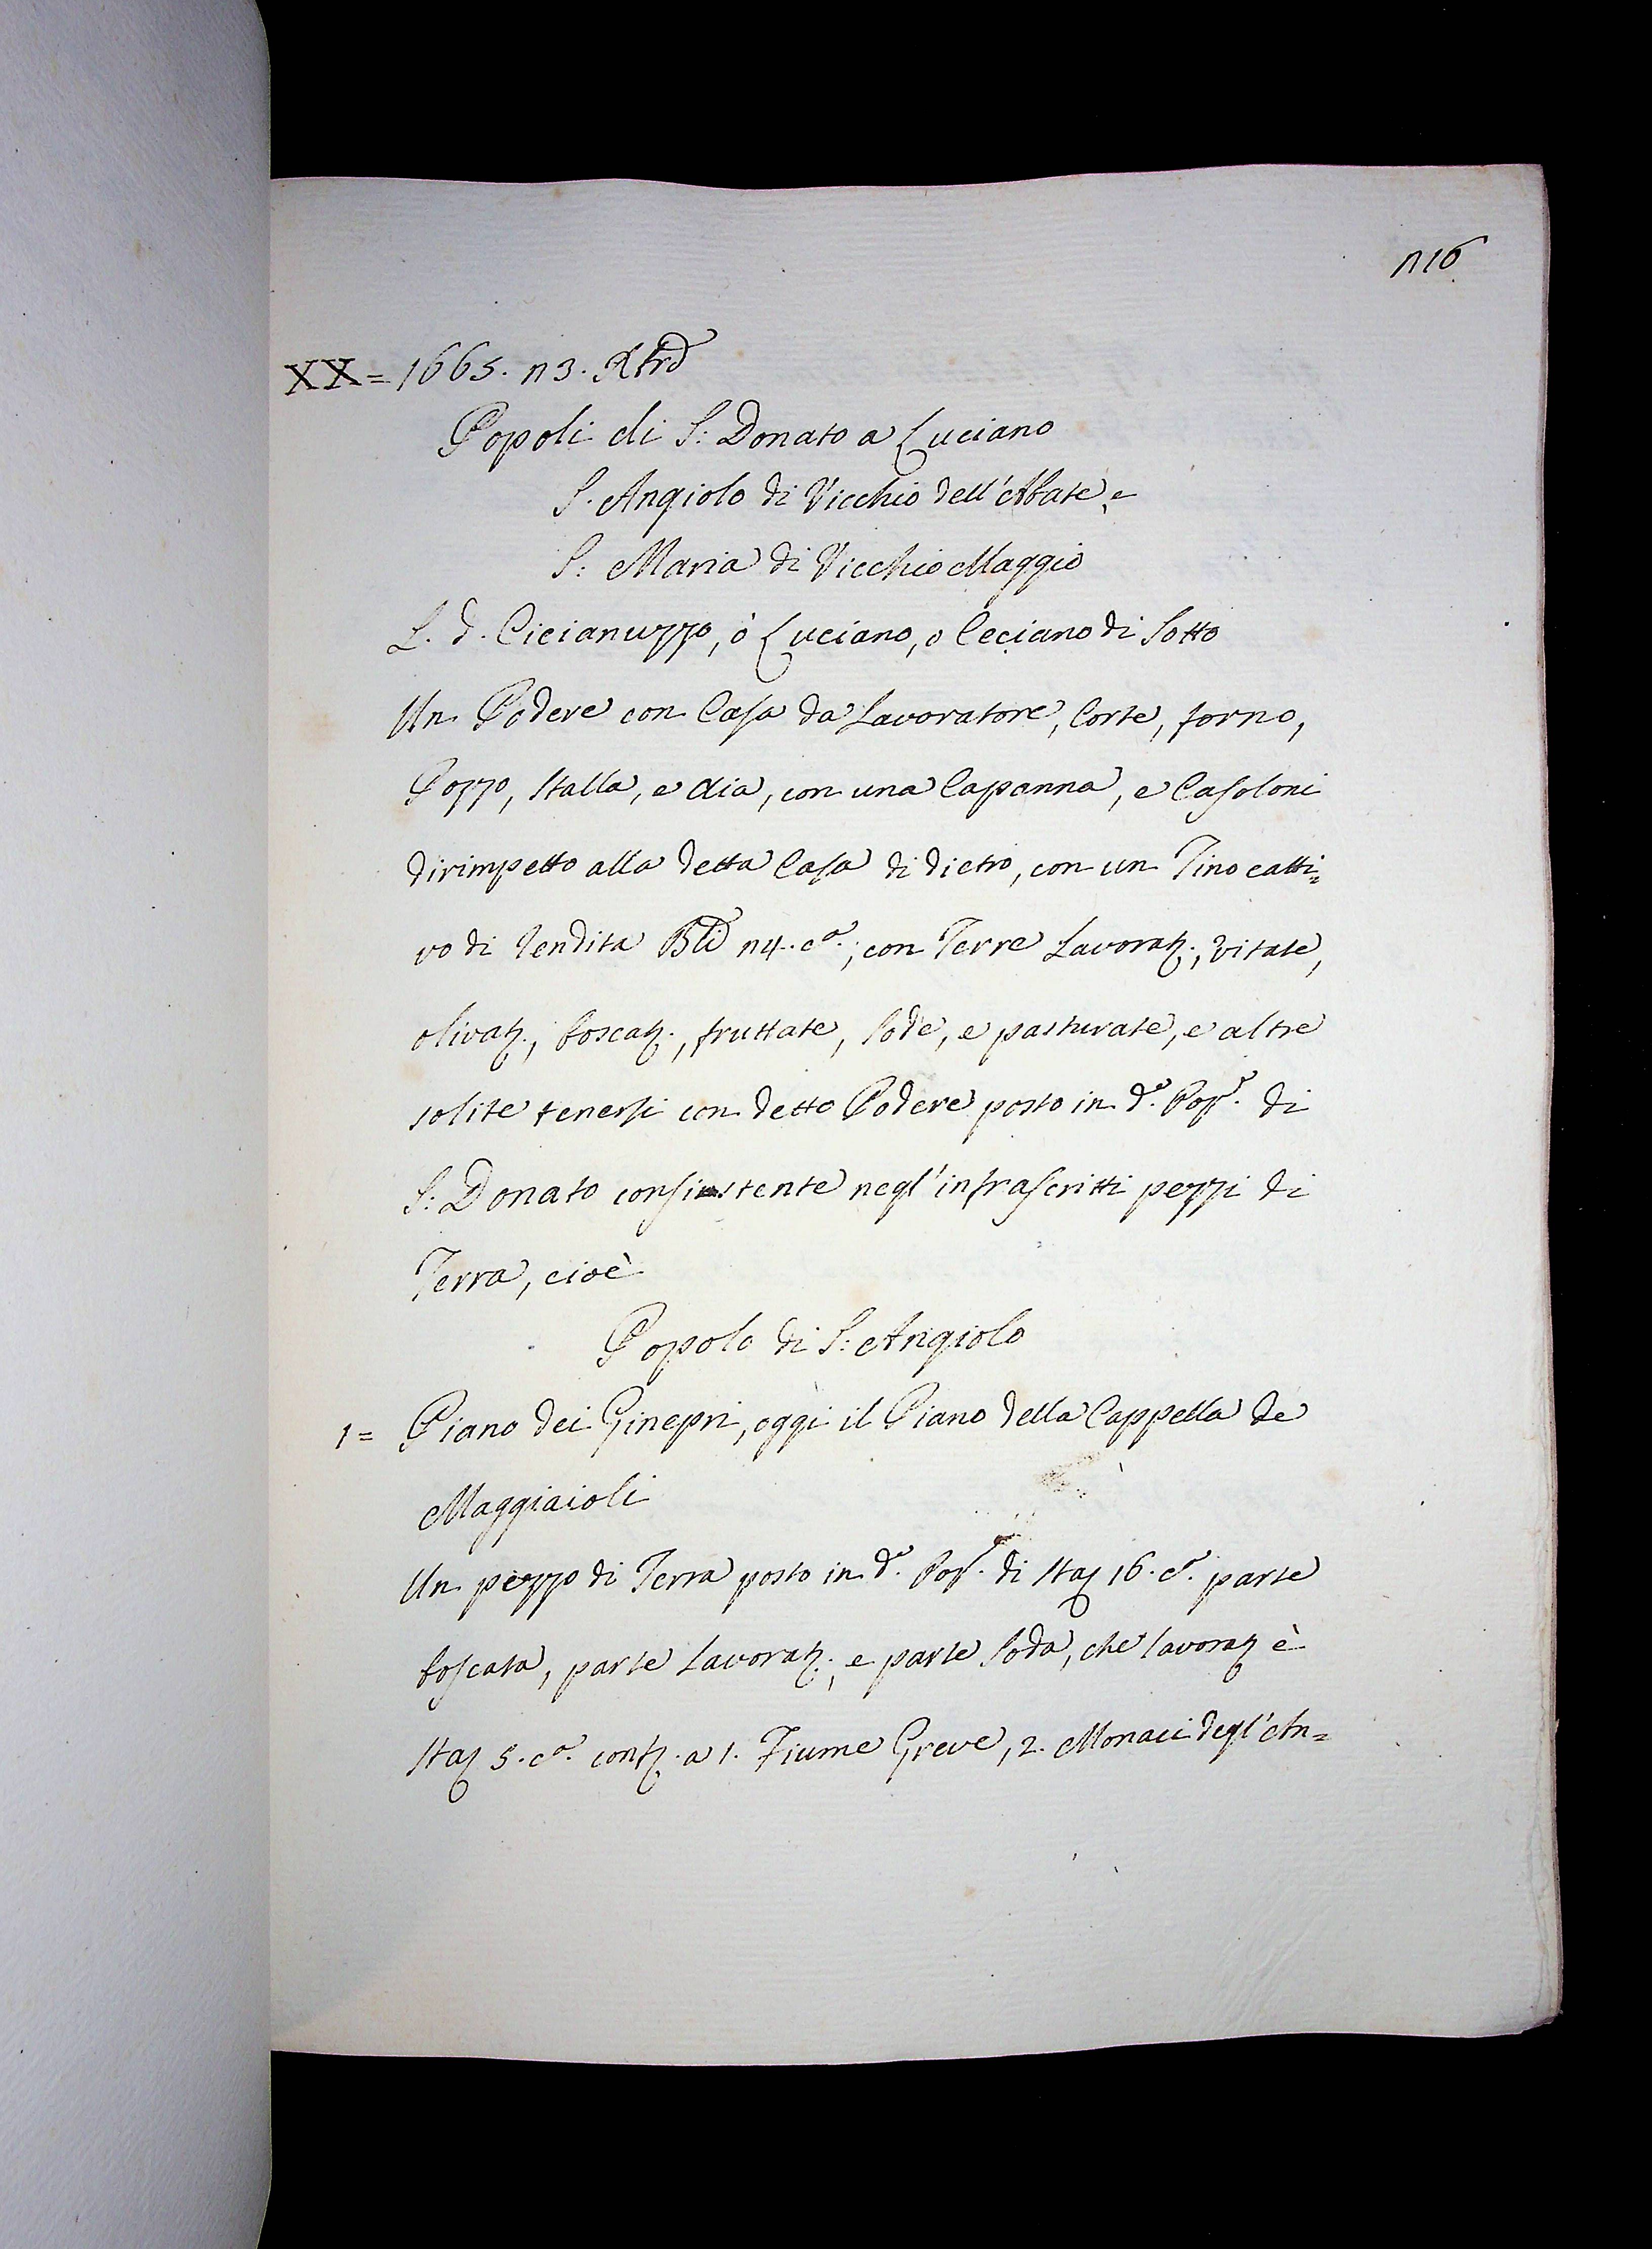 116
XX = 1665. 13. Xbre
Popoli di S: Donato a Luciano
S. Angiolo di Vicchio dell'Abate, e
S: Maria di Vicchio Maggio
L. d. Cicianuzzo, ò Luciano, o Ceciano di Sotto
Un Podere con Casa da Lavoratore, Corte, forno,
Pozzo, Stalla, e Aia, con una Capanna, e Casoloni
dirimpetto alla detta Casa di dietro, con un Tino catti=
vo di tenuta Bli 14. ca.; con Terre Lavorat.; vitate,
olivat., boscat., fruttate, sode, e pasturate, e altre
solite tenersi con detto Podere posto in do. Popo. di
S: Donato consistente negl'infrascritti pezzi di
Terra, cioè
Popolo di S: Angiolo
1 = Piano dei Ginepri, oggi il Piano della Cappella de
Maggiaioli
Un pezzo di Terra posto in do. Popo. di Sta 16. ca. parte
boscata, parte Lavorat.; e parte Soda, che lavorat è
Sta 5. ca. conf. a 1. Fiume Greve, 2. Monaci degl'An=